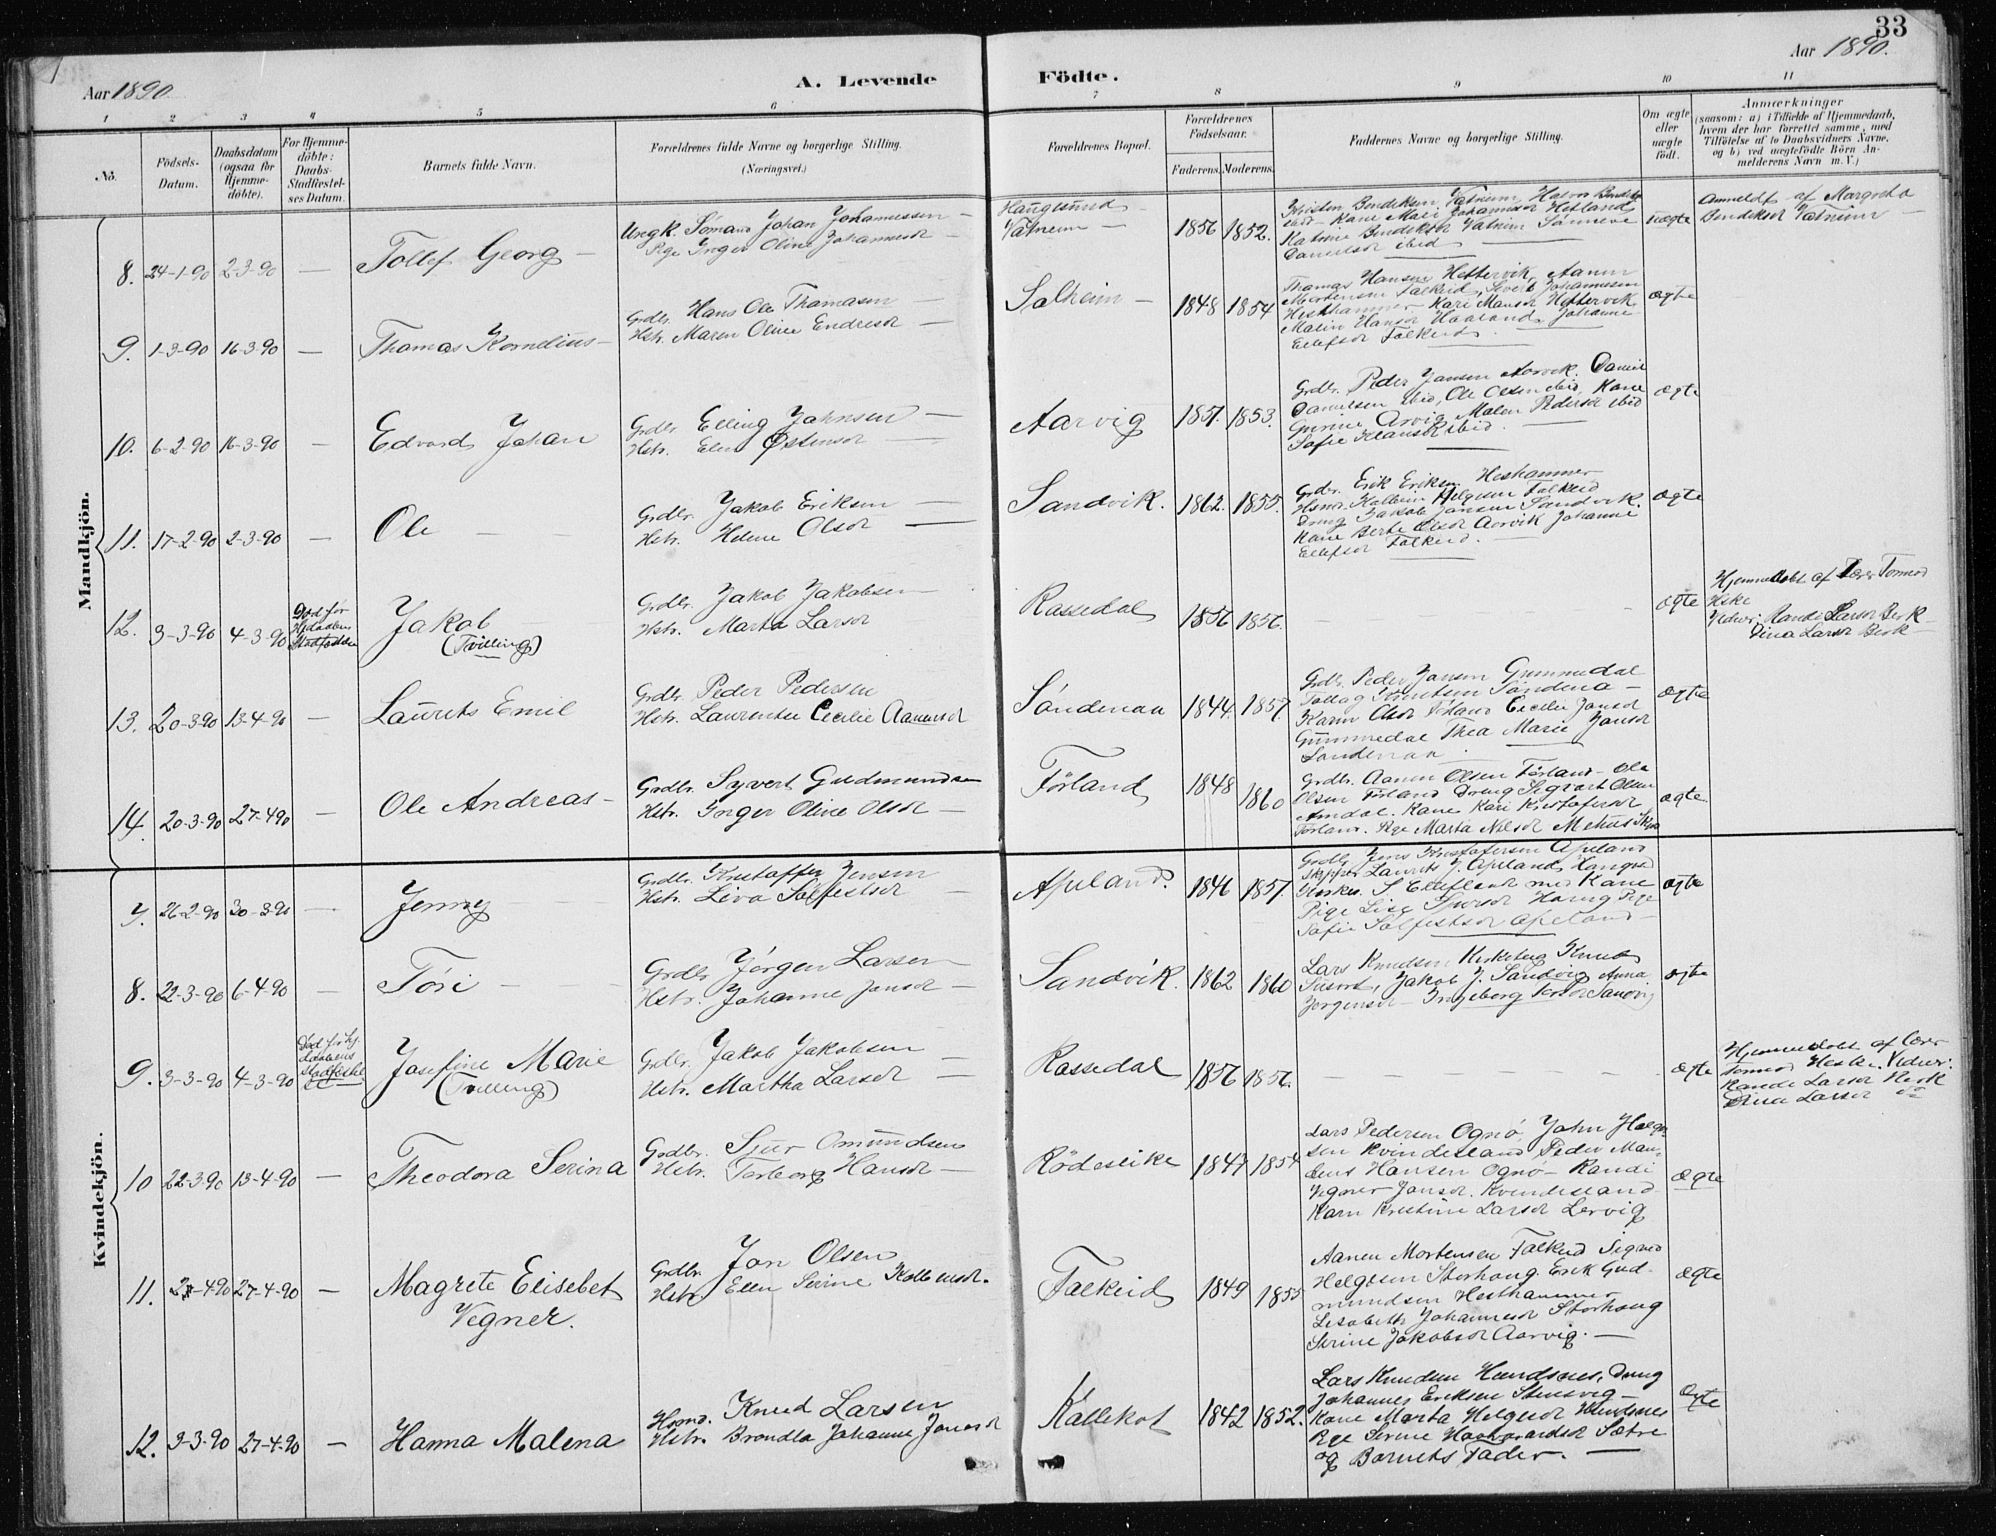 33
Aar 1890.
A. Levende
Födte.
Aar 1890.
1 2 3 4 5 6 7 8 9 10 11
No.
Fødsels-
Datum.
Daabsdatum
(ogsaa for
Hjemme-
döbte).
For Hjemme-
döbte:
Daabs-
Stadfæstel-
ses Datum.
Barnets fulde Navn.
Forældrenes fulde Navne og borgerlige Stilling.
(Næringsvei.)
Forældrenes Bopæl.
Forældrenes
Födselsaar.
Faderens. Moderens.
Faddernes Navne og borgerlige Stilling.
Om ægte
eller
uægte
födt.
Anmærkninger
(saasom: a) i Tilfælde af Hjemmedaab,
hvem der har forrettet samme, med
Tilföielse af to Daabsvidners Navne,
og b) ved uægtefödte Börn An-
melderens Navn m. V.)
Mandkjön.
8. 24-1-90 2-3-90 — Tollef Georg —
Ungk. Sømand Johan Johannessen —
Pge Inger Oline Johannesdr —
Haugesund —
Vatneim —
1856 1852.
Kristen Bendiksen Vatneim, Halvor Bendiksen
ibid — Kone Mari Johannesdr Hetland
Katrine Bendiksdr Vatneim Sønneve
Danielsdr ibid —
uægte
Anmeldt af Margreta
Bendiksdr Vatneim —
9. 1-3-90 16-3-90 — Thomas Kornelius —
Grdbr. Hans Ole Thomasen —
Hstr. Maren Oline Endresdr —
Salheim — 1848 1854
Thomas Hansen Hettervik, Aanen
Mortensen Falkeid, Sivert Johannesen
Hesthammer — Kari Mansdr Hettervik
Malin Hansdr Haaland, Johanne
Ellefsdr Falkeid.
ægte
10. 6-2-90 16-3-90 — Edvard Johan
Grdbr. Elling Jahnsen —
Hstr. Elen Østensdr —
Aarvig 1851. 1853.
Grdbr. Peder Jansen Aarvik. Daniel
Danielsen ibid, Ole Olsen ibid Kone
Gurine Arvig Malen Pedersdr ibid
Sofie Klausdr ibid. —
ægte
11. 17-2-90 2-3-90 — Ole — —
Grdbr. Jakob Eriksen —
Hstr. Helene Olsdr —
Sandvik. 1862. 1855.
Grdbr. Erik Eriksen Hesthammer
Hsmd. Kolbein Helgesen Falkeid
Dreng Jakob Jansen Sandvik
Kone Berte Olsdr Aarvik Johanne
Ellefsdr Falkeid. —
ægte
12. 3-3-90 4-3-90
Død før
Hjdaabens
Stadfæstelse
Jakob
(Tvilling)
Grdbr. Jakob Jakobsen —
Hstr. Marta Larsdr
Rassedal 1856 1856.
ægte
Hjemmedøbt af Lærer Tormod
Heske
Vidner: Randi Larsdr Besk —
Dina Larsdr Besk —
13. 20-3-90 13-4-90 — Laurits Emil
Grdbr. Peder Pedersen
Hstr. Laurentse Cecilie Aanensdr
Søndenaa 1844. 1857.
Grdbr. Peder Jansen Gummedal
Tollag Knutsen Søndena —
Karin Olsdr Føland Cecilie Jansdr
Gummedal Thea Marie Jansdr
Sandenaa —
ægte
14. 20-3-90 27-4 90 — Ole Andreas —
Grdbr. Syvert Gudmundsen
Hstr. Inger Oline Olsdr —
Førland 1848 1860
Grdbr. Aanen Olsen Førland — Ole
Olsen Førland Dreng Sigvart Olsen
Amdal. Kone Kari Kristofersdr
Førland. Pge Marta Nilsdr Mehus Skjold
ægte
Kvindekjön.
7. 26-2-90 30-3-90 — Jenny
Grdbr. Kristoffer Jensen
Hstr. Liva Salfestsdr —
Apeland. 1846 1857.
Grdbr. Jens Kristofersen Apeland
Skipper Laurits J. Apeland
Pige Lise
Sofie Salfestsdr Apeland —
ægte
8. 22-3-90 6-4-90 — Töri —
Grdbr. Jørgen Larsen
Hstr. Johanne Jansdr —
Sandvik. 1862 1860
Lars Knudsen Kirkeberg Knud
Jakob J. Sandvig Anna
Jørgensdr — Ingeborg Sandvig
ægte
9. 3-3-90 4-3-90
Død før hj.
daabens
stadfæstel.
Josefine Marie
(Tvilling)
Grdbr. Jakob Jakobsen —
Hstr. Martha Larsdr —
Rassedal 1856 1856.
ægte
Hjemmedøbt af Lærer
Tormod Heske. Vidner:
Randi Larsdr Hesk
Dina Larsdr do
10 22-3-90 13-4-90 — Theodora Serina
Grdbr. Sjur Omundsen
Hstr. Torborg Hansdr —
Rödesike 1847 1854
Lars Pedersen Ognø, John Helge-
sen Kvindesland Peder Mau-
Hansen Ognø — Randi
Vegner Jansdr. Kvindesland
Karn Kristine Larsdr Lervig
ægte
11. 27-4-90 27-4-90 — Magrete Elisebet
Vegner.
Grdbr. Jon Olsen
Hstr. Ellen Serine Kolbensdr.
Falkeid 1849 1855
Aanen Mortensen Falkeid Sigved
Helgesen Storhaug. Erik Gud-
mundsen Hesthammer
Lisabeth Johannesdr Storhaug
Serine Jakobsdr Aarvig. —
ægte
12. 3-3-90 27-4-90 — Hanna Malena
Hsmd. Knud Larsen
Hstr. Brondla Johanne Jonasdr
Kallekot 1842 1852.
Lars Knudsen Hundsnes, Dreng
Johannes Eriksen Stensvig —
Kone Marta Helgesdr Hundsnes
Pge Serine Haavardsdr Sætre
og Barnets Fader. —
ægte